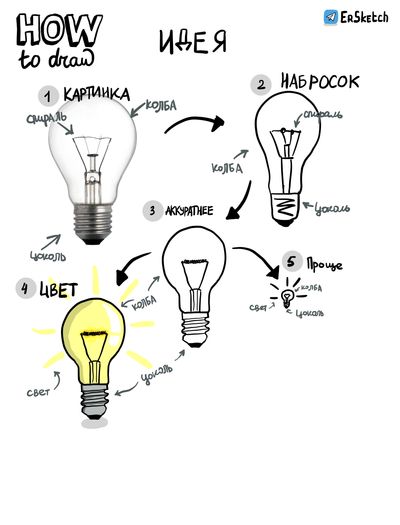 HOW
to draw
ИДЕЯ
ErSketch
1 КАРТИНКА
спираль
колба
цоколь
2 НАБРОСОК
спираль
колба
цоколь
3 АККУРАТНЕЕ
колба
цоколь
4 ЦВЕТ
свет
5 Проще
колба
свет
цоколь